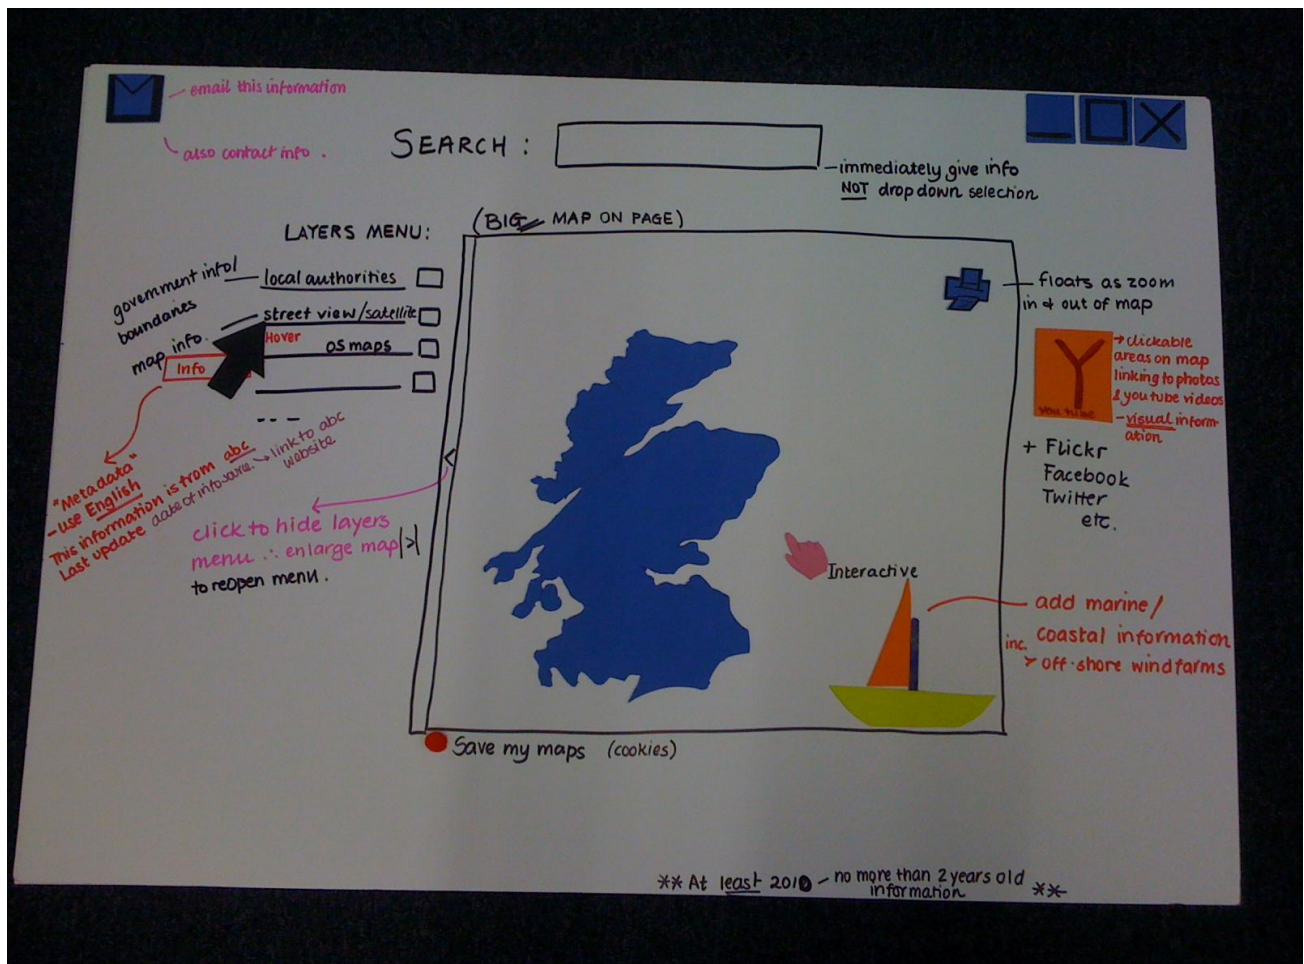 — email this information
also contact info .
SEARCH :
— immediately give info
NOT drop down selection
(BIG MAP ON PAGE)
LAYERS MENU:
government info/
boundaries
map info.
local authorities
street view/satellite
Hover
OS maps
Info
"Metadata"
- use English
This information is from abc → link to abc
website
Last update date of info source.
click to hide layers
menu ∴ enlarge map |>|
to reopen menu .
<
floats as zoom
in & out of map
Y
you tube
→ clickable
areas on map
linking to photos
& you tube videos
- visual inform-
ation
+ Flickr
Facebook
Twitter
etc.
Interactive
add marine/
inc. coastal information
> off-shore windfarms
Save my maps (cookies)
** At least 2010 – no more than 2 years old
information **